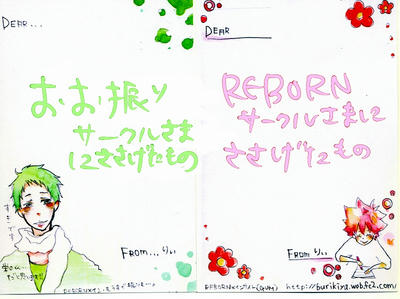 DEAR...
おお振り
サークルさま
にささげたもの
すきです
FROM...りぃ
DEAR
REBORN
サークルさまに
ささげたもの
FROM りぃ